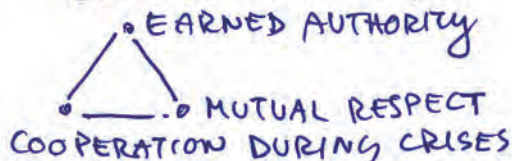 EARNED AUTHORITY
MUTUAL RESPECT
COOPERATION DURING CRISES